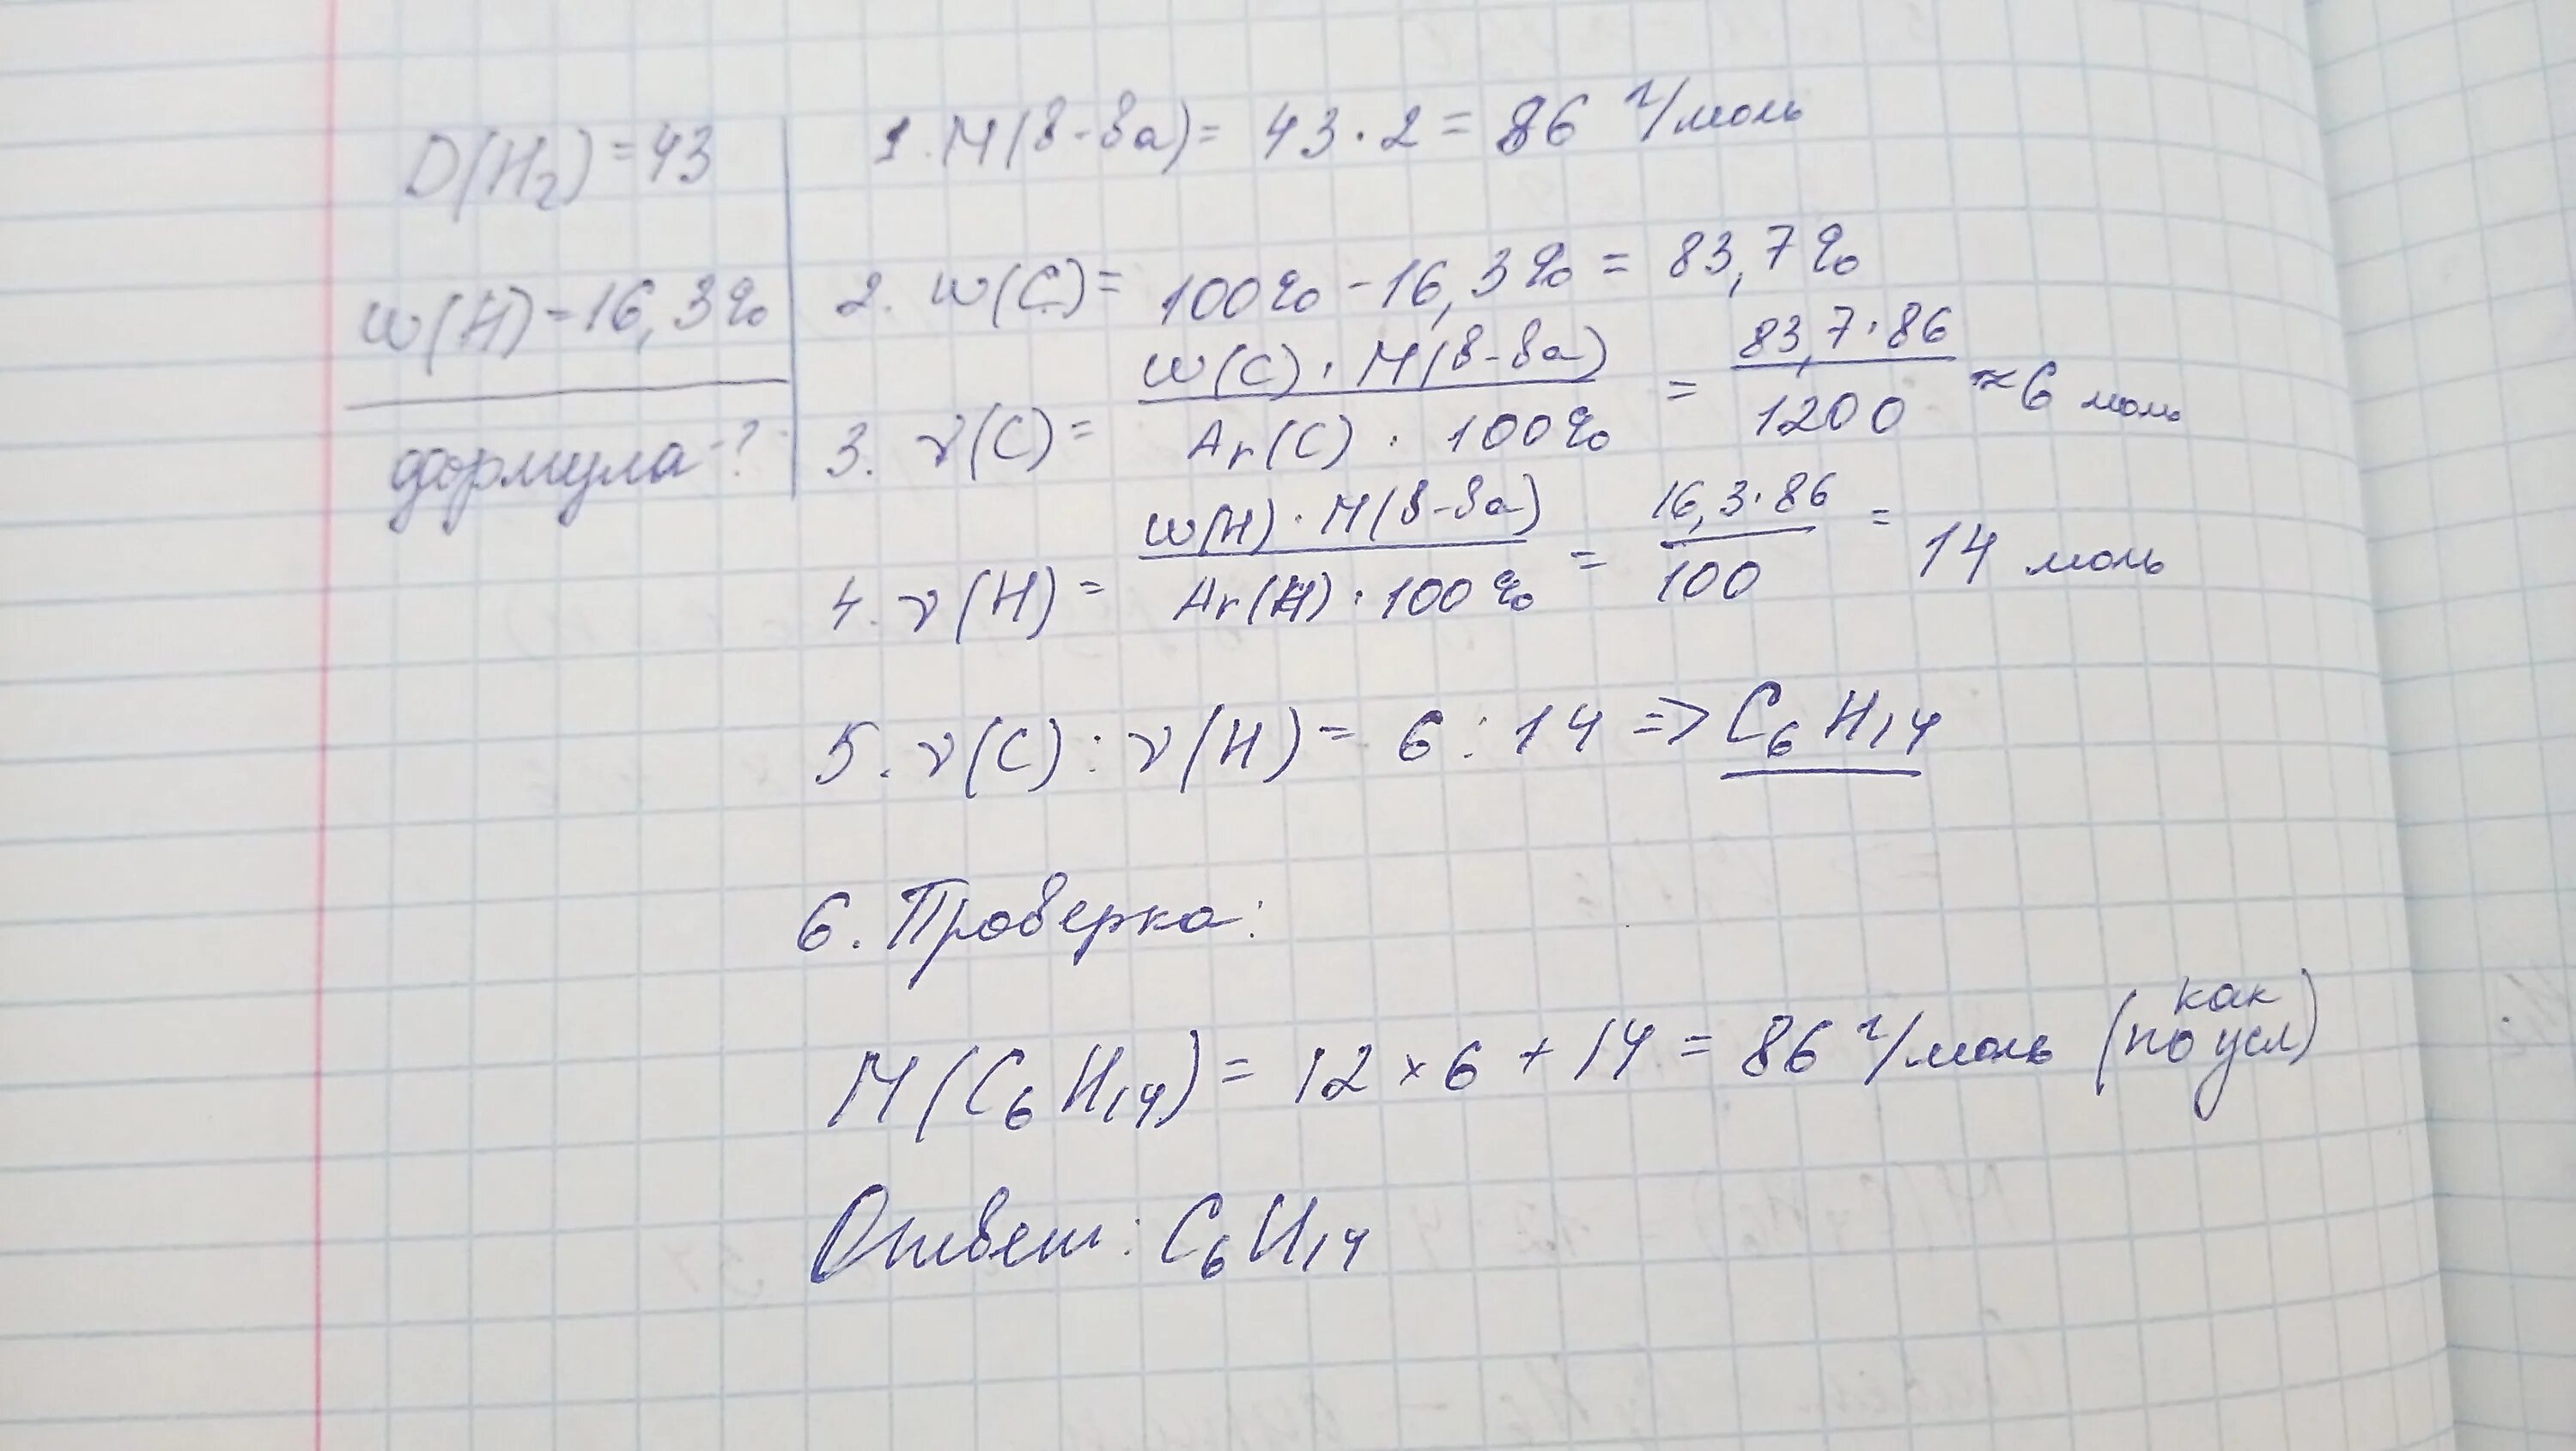 D(H₂) = 43
w(H) = 16,3%
формула - ?
1. M(в-ва) = 43 · 2 = 86 г/моль
2. w(C) = 100% - 16,3% = 83,7%
3. ν(C) = w(C) · M(в-ва) / Ar(C) · 100% = 83,7 · 86 / 1200 ≈ 6 моль
4. ν(H) = w(H) · M(в-ва) / Ar(H) · 100% = 16,3 · 86 / 100 = 14 моль
5. ν(C) : ν(H) = 6 : 14 => C₆H₁₄
6. Проверка:
M(C₆H₁₄) = 12 × 6 + 14 = 86 г/моль (как по усл)
Ответ: C₆H₁₄